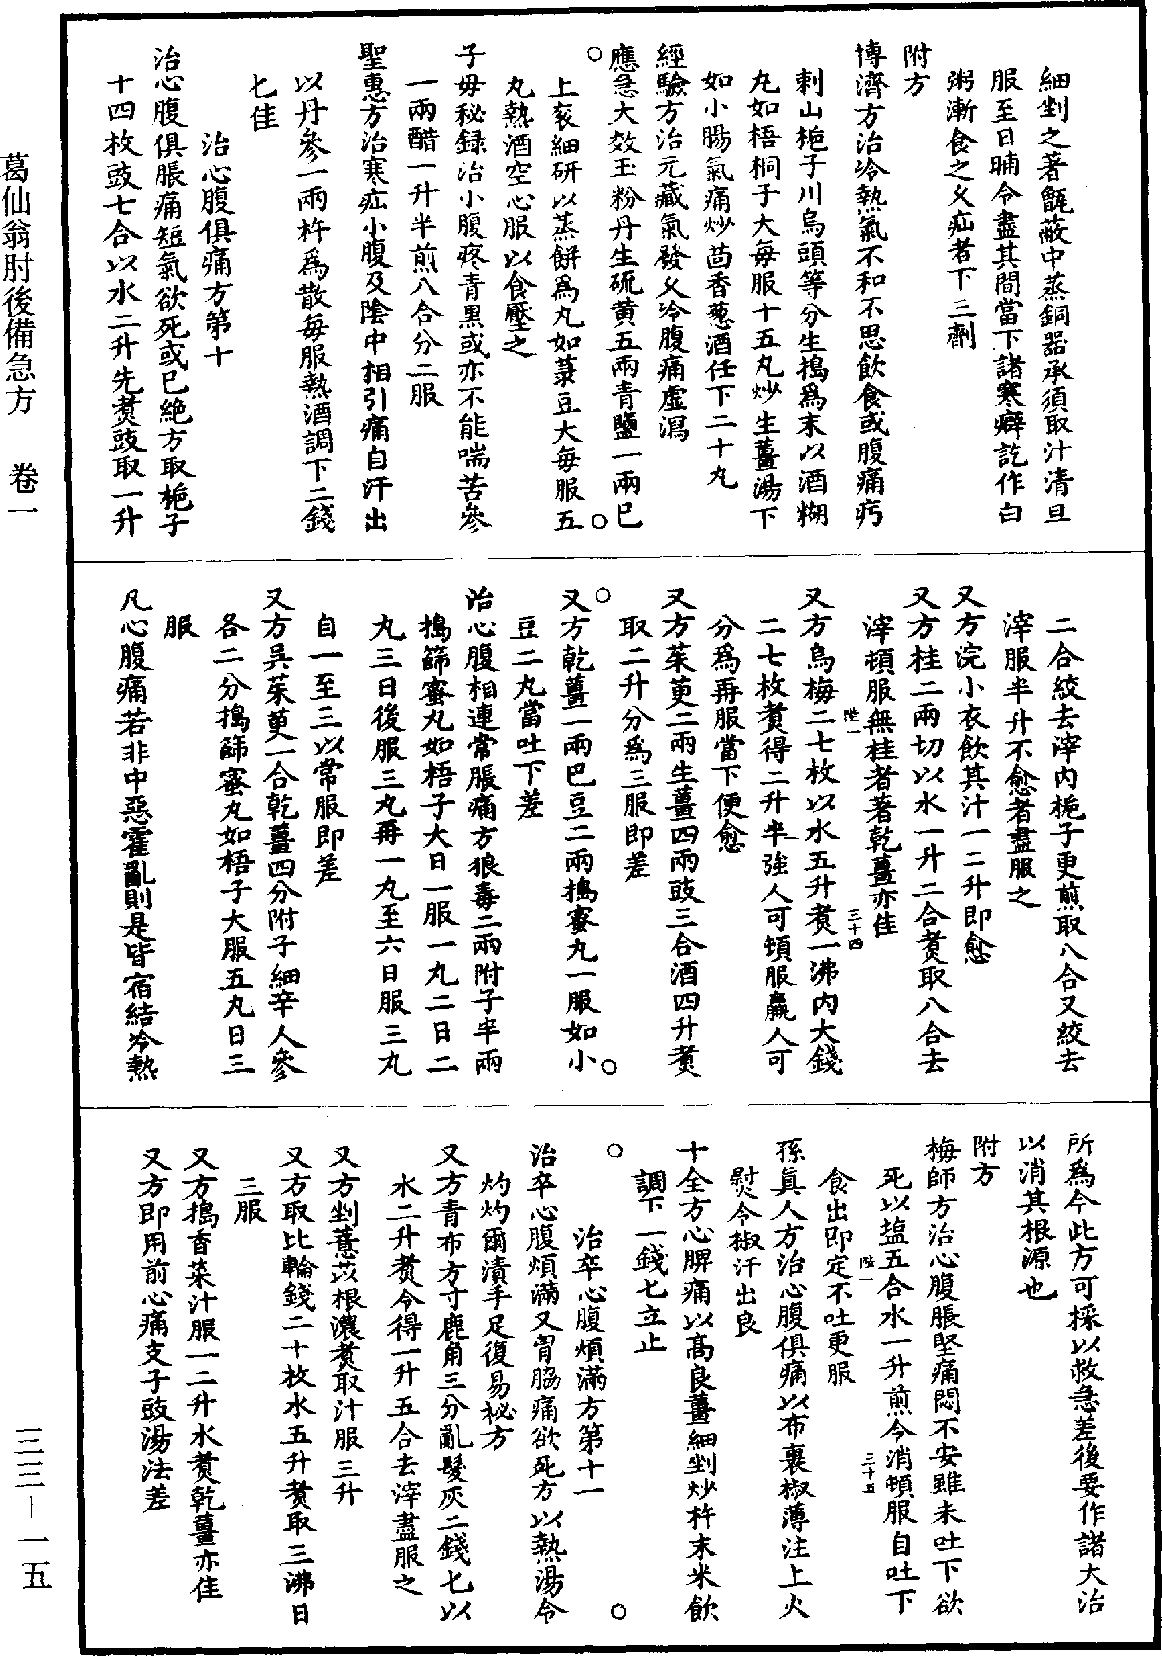 細剉之著甑蔽中蒸銅器承須取汁清旦
服至日晡令盡其間當下諸寒癖訖作白
粥漸食之义疝者下三劑
附方
博濟方治冷熱氣不和不思飲食或腹痛㽲
刺山梔子川烏頭等分生搗爲末以酒糊
丸如梧桐子大每服十五丸炒生薑湯下
如小腸氣痛炒茴香葱酒任下二十丸
經驗方治元藏氣發义冷腹痛虛瀉
應急大效玉粉丹生硫黄五兩青鹽一兩已
上衮細研以蒸餅爲丸如菉豆大每服五
丸熱酒空心服以食壓之
子母秘録治小腹疼青黑或亦不能喘苦參
一兩醋一升半煎八合分二服
聖惠方治寒疝小腹及陰中相引痛自汗出
以丹參一兩杵爲散每服熱酒調下二錢
匕佳
治心腹俱痛方第十
治心腹俱脹痛短氣欲死或已絶方取梔子
十四枚豉七合以水二升先煑豉取一升
二合絞去滓内梔子更煎取八合又絞去
滓服半升不愈者盡服之
又方浣小衣飲其汁一二升即愈
又方桂二兩切以水一升二合煑取八合去
滓頓服無桂者著乾薑亦佳
陛一
三十四
又方烏梅二七枚以水五升煑一沸内大錢
二七枚煑得二升半強人可頓服羸人可
分爲再服當下便愈
又方茱萸二兩生薑四兩豉三合酒四升煑
取二升分爲三服即差
又方乾薑一兩巴豆二兩搗蜜丸一服如小
豆二丸當吐下差
治心腹相連常脹痛方狼毒二兩附子半兩
搗篩蜜丸如梧子大日一服一丸二日二
丸三日後服三丸再一丸至六日服三丸
自一至三以常服即差
又方吳茱萸一合乾薑四分附子細辛人參
各二分搗篩蜜丸如梧子大服五丸日三
服
凡心腹痛若非中惡霍亂則是皆宿結冷熱
所爲今此方可採以救急差後要作諸大治
以消其根源也
附方
梅師方治心腹脹堅痛悶不安雖未吐下欲
死以盐五合水一升煎令消頓服自吐下
食出即定不吐更服
陛一
三十五
孫真人方治心腹俱痛以布裹椒薄注上火
熨令椒汗出良
十全方心脾痛以高良薑細剉炒杵末米飲
調下一錢匕立止
治卒心腹煩滿方第十一
治卒心腹煩滿又胷脇痛欲死方以熱湯令
灼灼爾漬手足復易秘方
又方青布方寸鹿角三分亂髮灰二錢匕以
水二升煑令得一升五合去滓盡服之
又方剉薏苡根濃煑取汁服三升
又方取比輪錢二十枚水五升煑取三沸日
三服
又方搗香菜汁服一二升水煑乾薑亦佳
又方即用前心痛支子豉湯法差
葛仙翁肘後備急方 卷一
三三—一五